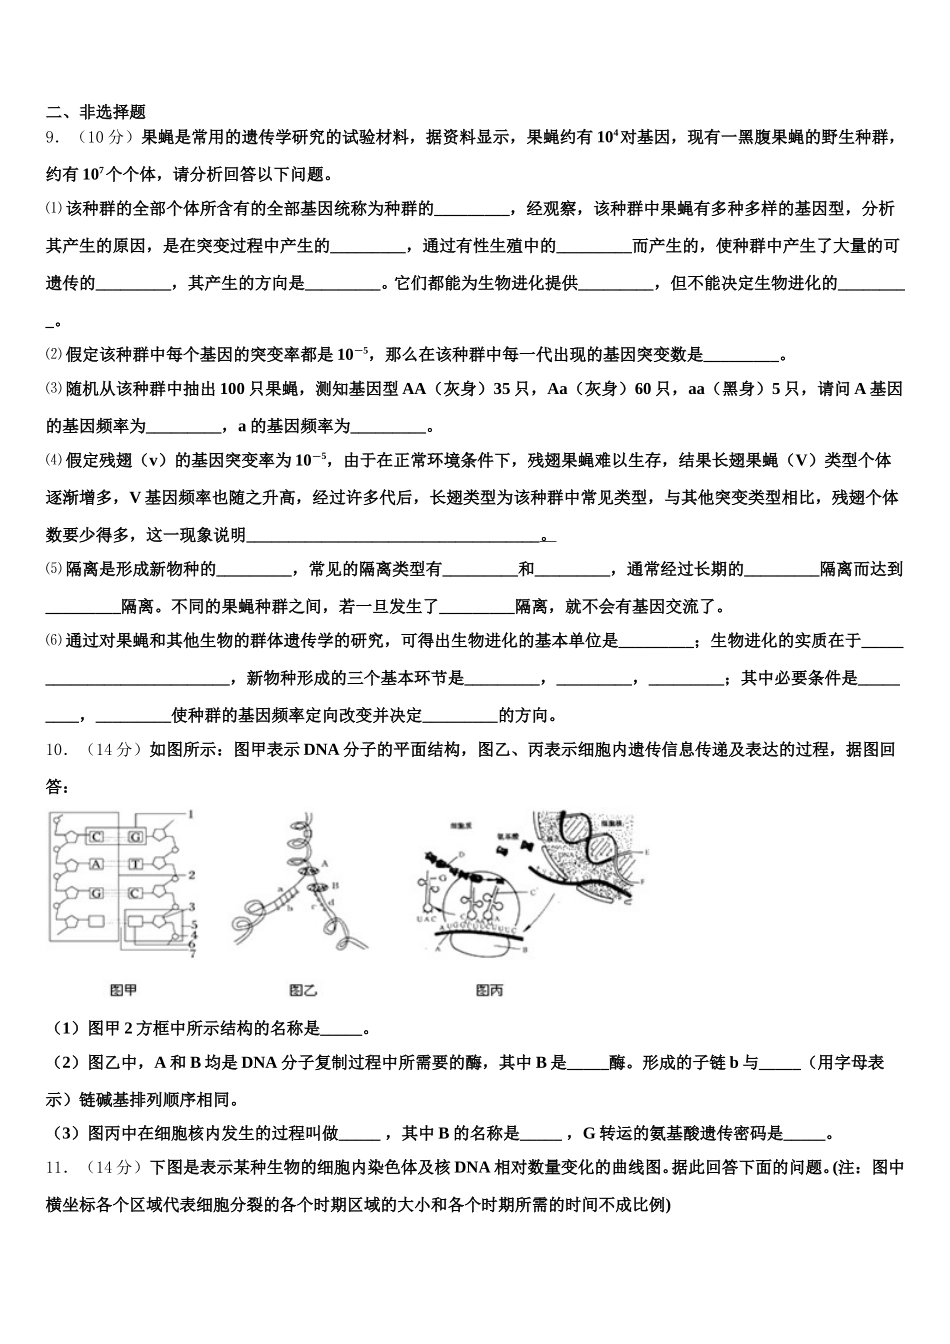 二、非选择题
9．（10 分）果蝇是常用的遗传学研究的试验材料，据资料显示，果蝇约有 10⁴对基因，现有一黑腹果蝇的野生种群，
约有 10⁷个个体，请分析回答以下问题。
⑴ 该种群的全部个体所含有的全部基因统称为种群的_________，经观察，该种群中果蝇有多种多样的基因型，分析
其产生的原因，是在突变过程中产生的_________，通过有性生殖中的_________而产生的，使种群中产生了大量的可
遗传的_________，其产生的方向是_________。它们都能为生物进化提供_________，但不能决定生物进化的________
_。
⑵ 假定该种群中每个基因的突变率都是 10⁻⁵，那么在该种群中每一代出现的基因突变数是_________。
⑶ 随机从该种群中抽出 100 只果蝇，测知基因型 AA（灰身）35 只，Aa（灰身）60 只，aa（黑身）5 只，请问 A 基因
的基因频率为_________，a 的基因频率为_________。
⑷ 假定残翅（v）的基因突变率为 10⁻⁵，由于在正常环境条件下，残翅果蝇难以生存，结果长翅果蝇（V）类型个体
逐渐增多，V 基因频率也随之升高，经过许多代后，长翅类型为该种群中常见类型，与其他突变类型相比，残翅个体
数要少得多，这一现象说明___________________________________。
⑸ 隔离是形成新物种的_________，常见的隔离类型有_________和_________，通常经过长期的_________隔离而达到
_________隔离。不同的果蝇种群之间，若一旦发生了_________隔离，就不会有基因交流了。
⑹ 通过对果蝇和其他生物的群体遗传学的研究，可得出生物进化的基本单位是_________；生物进化的实质在于_____
______________________，新物种形成的三个基本环节是_________，_________，_________；其中必要条件是_____
____，_________使种群的基因频率定向改变并决定_________的方向。
10．（14 分）如图所示：图甲表示 DNA 分子的平面结构，图乙、丙表示细胞内遗传信息传递及表达的过程，据图回
答：
C G 1
A T 2
G C 3
5
4
6
7
A
B
a
b
c
d
细胞质
氨基酸
细胞核
DNA
D
G
C
E
F
U A C
A
B
图甲 图乙 图丙
（1）图甲 2 方框中所示结构的名称是_____。
（2）图乙中，A 和 B 均是 DNA 分子复制过程中所需要的酶，其中 B 是_____酶。形成的子链 b 与_____（用字母表
示）链碱基排列顺序相同。
（3）图丙中在细胞核内发生的过程叫做_____ ，其中 B 的名称是_____ ，G 转运的氨基酸遗传密码是_____。
11．（14 分）下图是表示某种生物的细胞内染色体及核 DNA 相对数量变化的曲线图。据此回答下面的问题。(注：图中
横坐标各个区域代表细胞分裂的各个时期区域的大小和各个时期所需的时间不成比例)